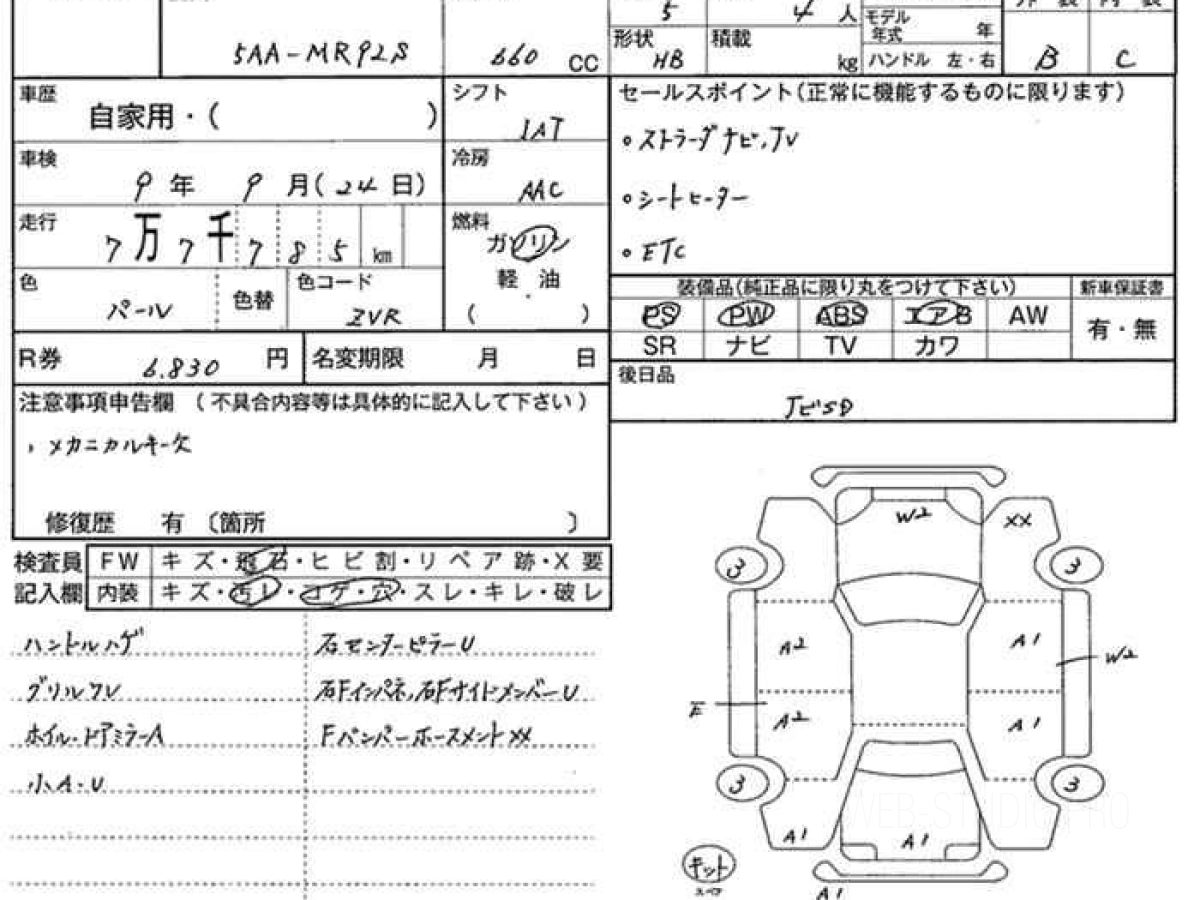 5 4 人 モデル年式 年
5AA-MR92S 660 CC
形状 HB 積載 kg ハンドル 左・右 B C
車歴 自家用・( )
シフト IAT
セールスポイント(正常に機能するものに限ります)
。ストラーダナビ、TV
。シートヒーター
。ETC
車検 9 年 9 月(24 日)
冷房 AAC
走行 7 万 7 千 7 8 5 km
燃料 ガソリン
軽 油
( )
色 パール 色替 色コード ZVR
装備品(純正品に限り丸をつけて下さい) 新車保証書
PS PW ABS エアB AW 有・無
SR ナビ TV カワ
R券 6.830 円 名変期限 月 日
後日品
注意事項申告欄 (不具合内容等は具体的に記入して下さい)
、メカニカルキー欠
修復歴 有 〔箇所 〕
検査員 FW キズ・飛石・ヒビ割・リペア跡・X要
記入欄 内装 キズ・汚レ・コゲ・穴・スレ・キレ・破レ
ハンドルハゲ 右センターピラーU
グリルワレ 右Fインパネ、右FサイドメンバーU
ホイル・ドアミラーA FバンパーホースメントXX
小A・U
W2 XX
3 3
A2 A1 W2
E A2 A1
3 3
A1 A1
キット
スペア
A1
WEB-STUDIO.PRO